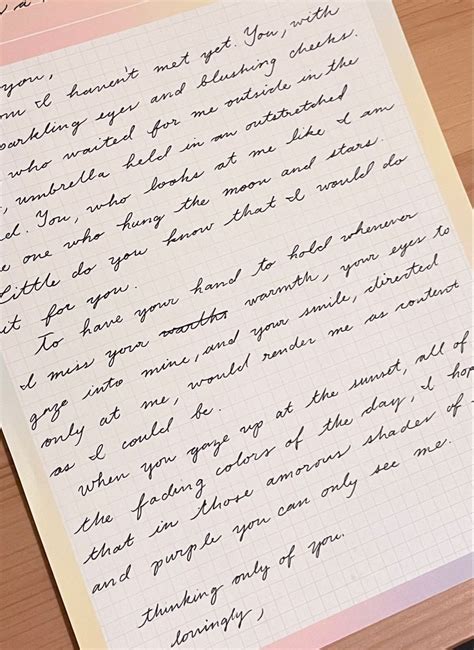 you,
I haven't met yet. You, with
sparkling eyes and blushing cheeks.
who waited for me outside in the
umbrella held in an outstretched
You, who looks at me like I am
one who hung the moon and stars.
Little do you know that I would do
it for you.
To have your hand to hold whenever
I miss your warmth, your eyes to
gaze into mine, and your smile, directed
only at me, would render me as content
as I could be.
When you gaze up at the sunset, all of
the fading colors of the day, I
that in those amorous shades of
and purple you can only see me.
thinking only of you.
lovingly,